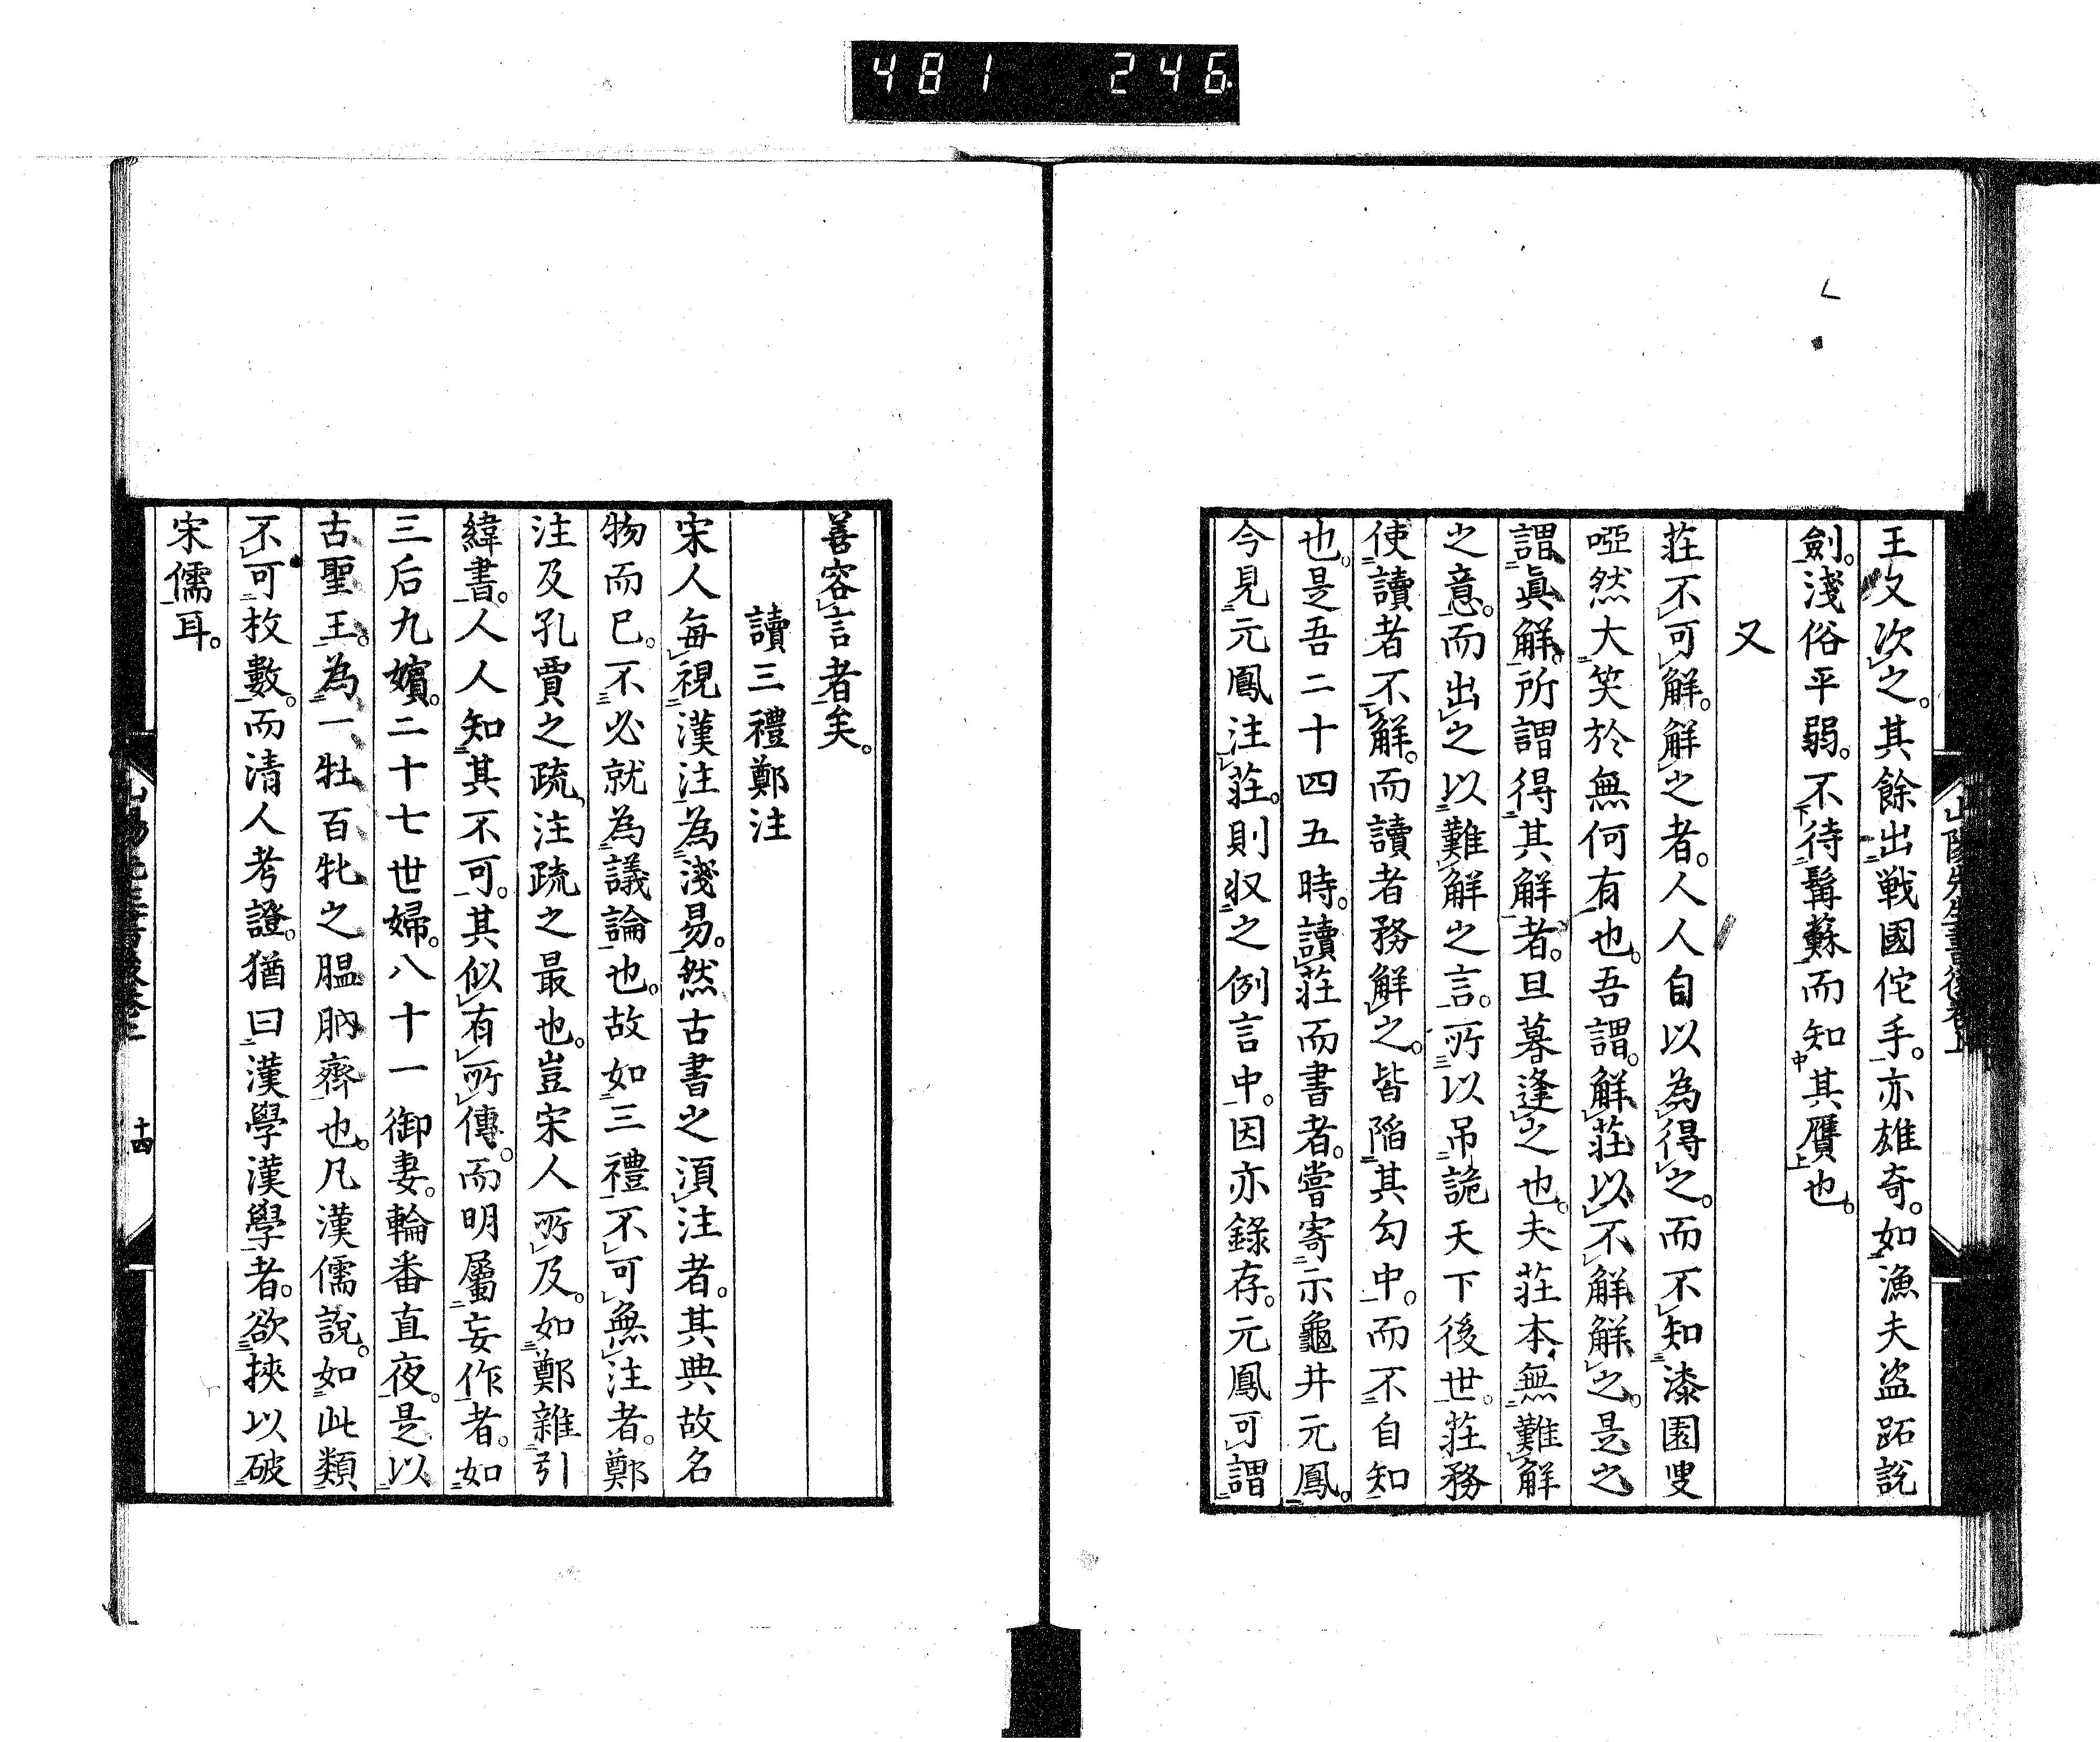 481 246
王又次之。其餘出戰國佗手。亦雄奇。如漁夫盜跖說
劍。淺俗平弱。不待髯蘇而知其贋也。
又
莊不可解。解之者。人人自以為得之。而不知漆園叟
啞然大笑於無何有也。吾謂。解莊以不解解之。是之
謂眞解。所謂得其解者。旦暮逢之也。夫莊本無難解
之意。而出之以難解之言。所以吊詭天下後世。莊務
使讀者不解。而讀者務解之。皆陷其勾中。而不自知
也。是吾二十四五時。讀莊而書者。嘗寄示龜井元鳳。
今見元鳳注莊。則収之例言中。因亦錄存。元鳳可謂
善容言者矣。
讀三禮鄭注
宋人每視漢注為淺易。然古書之須注者。其典故名
物而已。不必就為議論也。故如三禮不可無注者。鄭
注及孔賈之疏。注疏之最也。豈宋人所及。如鄭雜引
緯書。人人知其不可。其似有所傳。而明屬妄作者。如
三后九嬪。二十七世婦。八十一御妻。輪番直夜。是以
古聖王。為一牡百牝之膃肭臍也。凡漢儒說。如此類
不可枚數。而清人考證。猶曰漢學漢學者。欲挾以破
宋儒耳。
十四